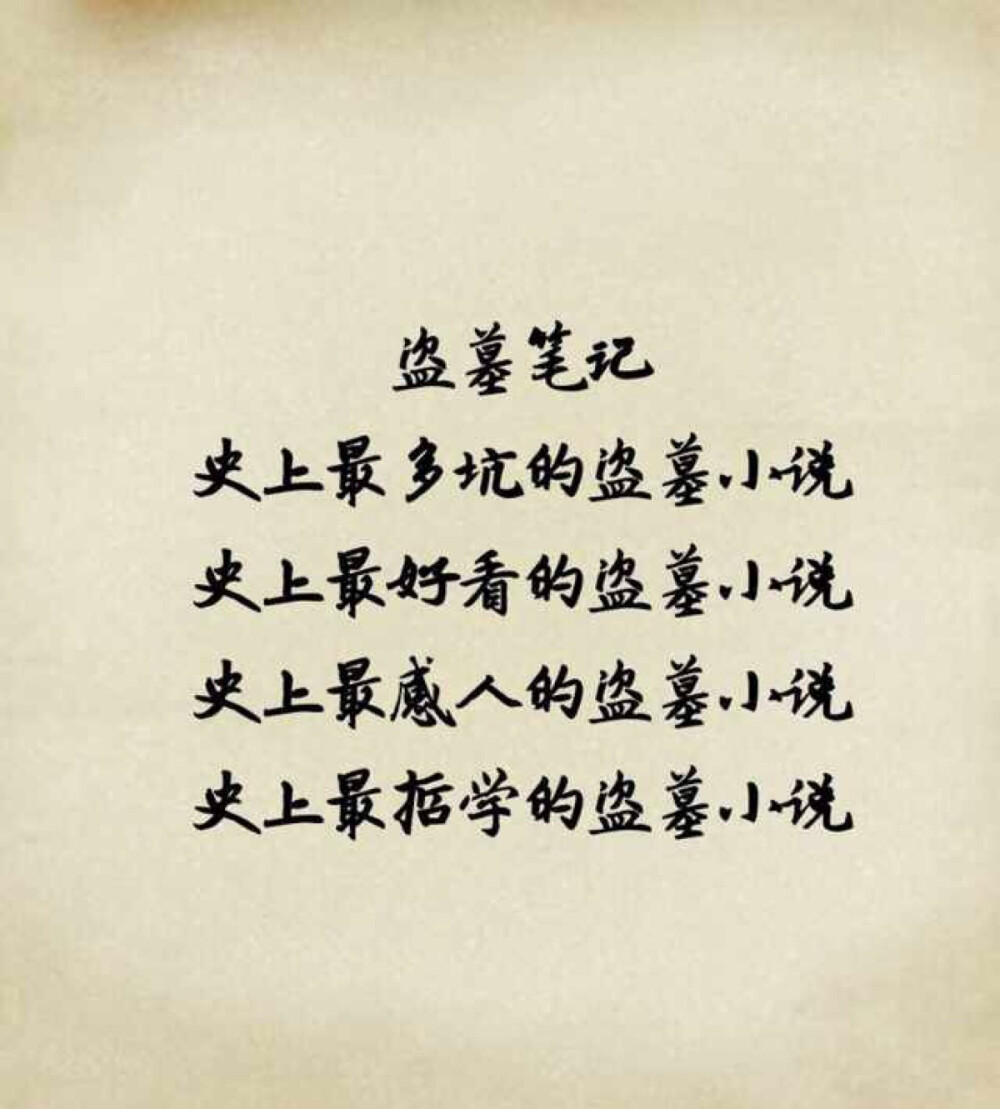 盗墓笔记
史上最多坑的盗墓小说
史上最好看的盗墓小说
史上最感人的盗墓小说
史上最哲学的盗墓小说